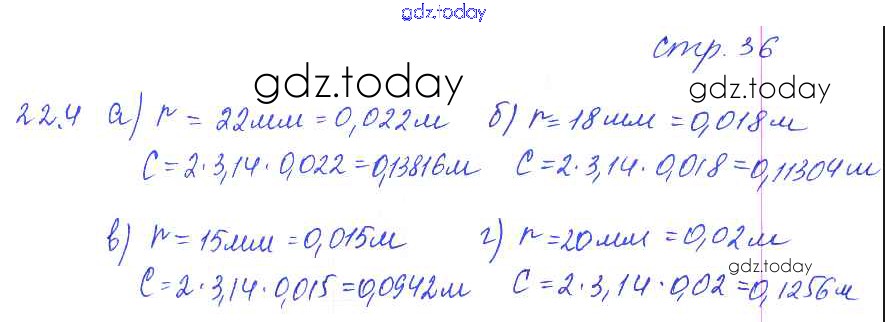 gdz.today
стр. 36
gdz.today
gdz.today
22.4 а) r = 22мм = 0,022м б) r = 18мм = 0,018м
C = 2 · 3,14 · 0,022 = 0,13816м C = 2 · 3,14 · 0,018 = 0,11304м
в) r = 15мм = 0,015м г) r = 20мм = 0,02м
gdz.today
C = 2 · 3,14 · 0,015 = 0,0942м C = 2 · 3,14 · 0,02 = 0,1256м